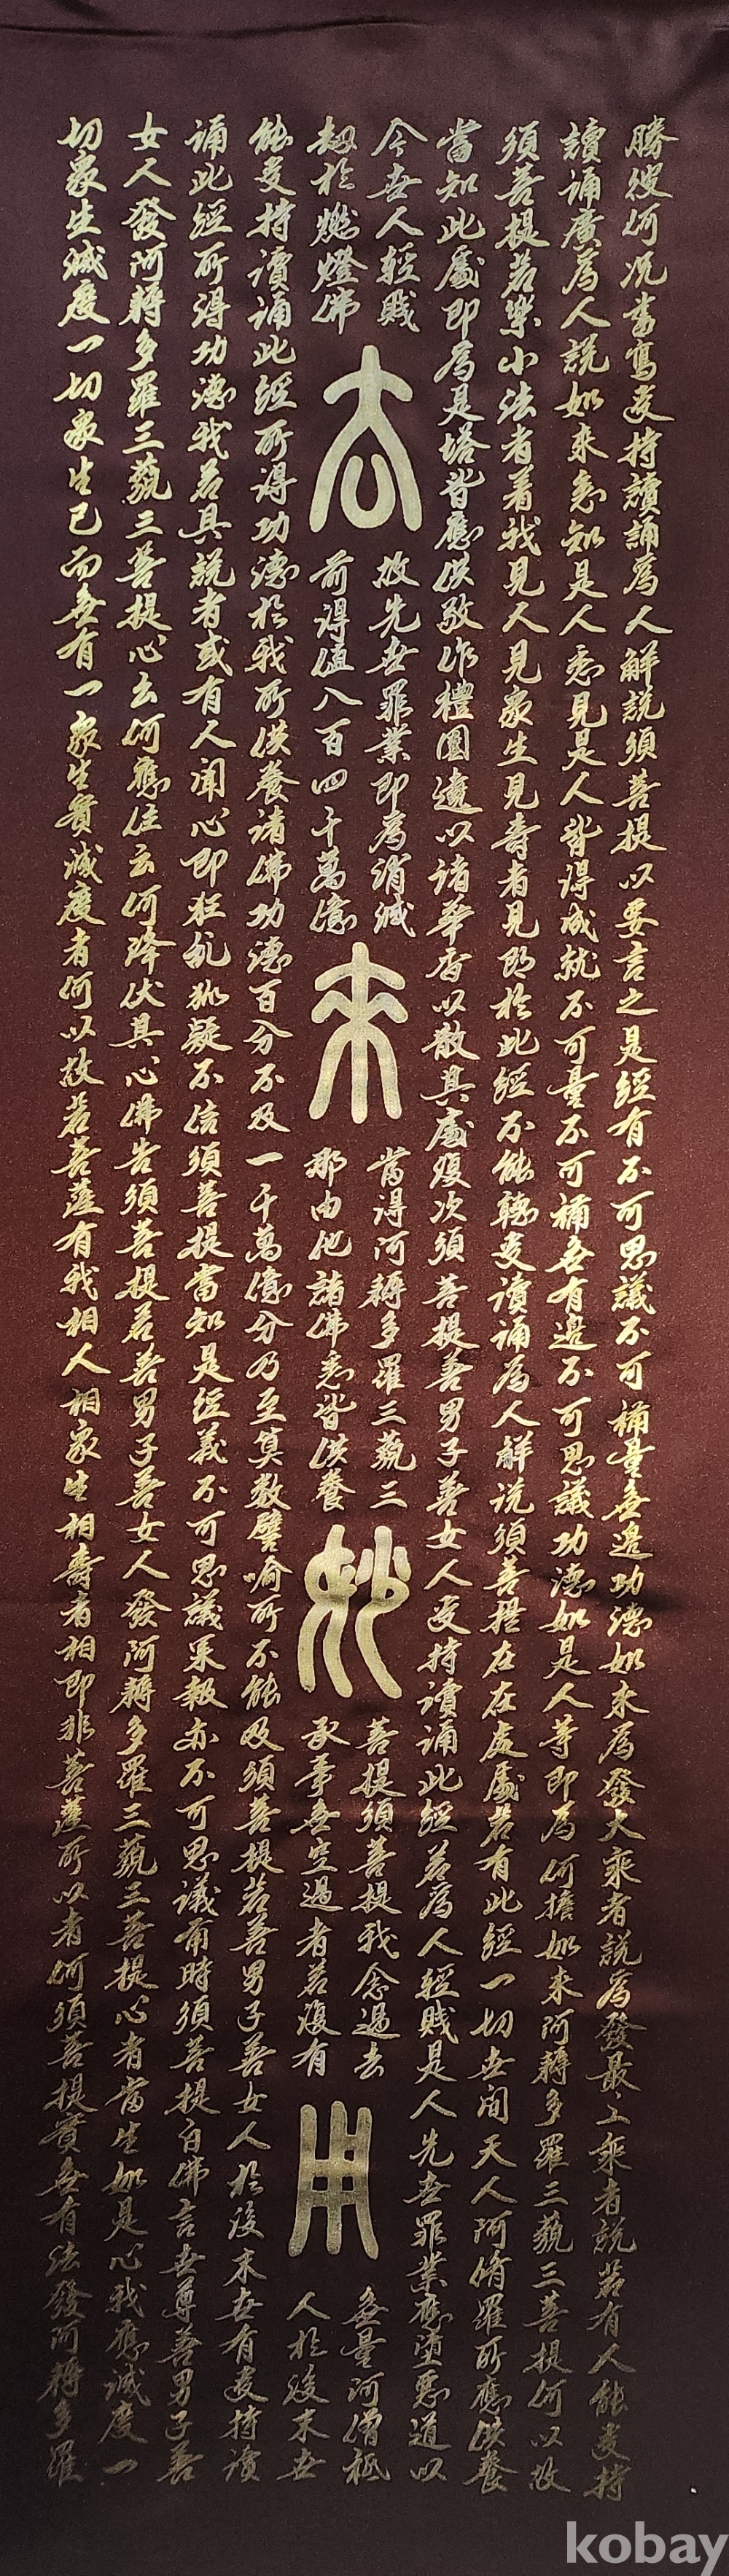 勝彼何況書寫受持讀誦為人解說須菩提以要言之是經有不可思議不可稱量無邊功德如來為發大乘者說為發最上乘者說若有人能受持
讀誦廣為人說如來悉知是人悉見是人皆得成就不可量不可稱無有邊不可思議功德如是人等即為何擔如來阿耨多羅三藐三菩提何以故
須菩提若樂小法者着我見人見眾生見壽者見即於此經不能聽受讀誦為人解說須菩提在在處處若有此經一切世間天人阿脩羅所應供養
當知此處即為是塔皆應供敬作禮圍遶以諸華香以散其處復次須菩提善男子善女人受持讀誦此經若為人輕賤是人先世罪業應墮惡道以
今世人輕賤故先世罪業即為消滅當得阿耨多羅三藐三菩提須菩提我念過去無量阿僧祇
去來妙用
劫於燃燈佛前得值八百四千萬億那由他諸佛悉皆供養承事無空過者若復有人於後末世
能受持讀誦此經所得功德於我所供養諸佛功德百分不及一千萬億分乃至算數譬喻所不能及須菩提若善男子善女人於後末世有受持讀
誦此經所得功德我若具說者或有人聞心即狂乱狐疑不信須菩提當知是經義不可思議果報亦不可思議爾時須菩提白佛言世尊善男子善
女人發阿耨多羅三藐三菩提心云何應住云何降伏其心佛告須菩提若善男子善女人發阿耨多羅三藐三菩提心者當生如是心我應滅度一
切眾生滅度一切眾生已而無有一眾生實滅度者何以故若菩薩有我相人相眾生相壽者相即非菩薩所以者何須菩提實無有法發阿耨多羅
kobay